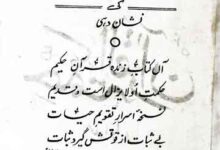 کی
نشان دہی
آں کتاب زندہ قرآن حکیم
حکمت او لایزال است و قدیم
نسخہ اسرار تقویم حیات
بے ثبات از قوتش گیرد ثبات